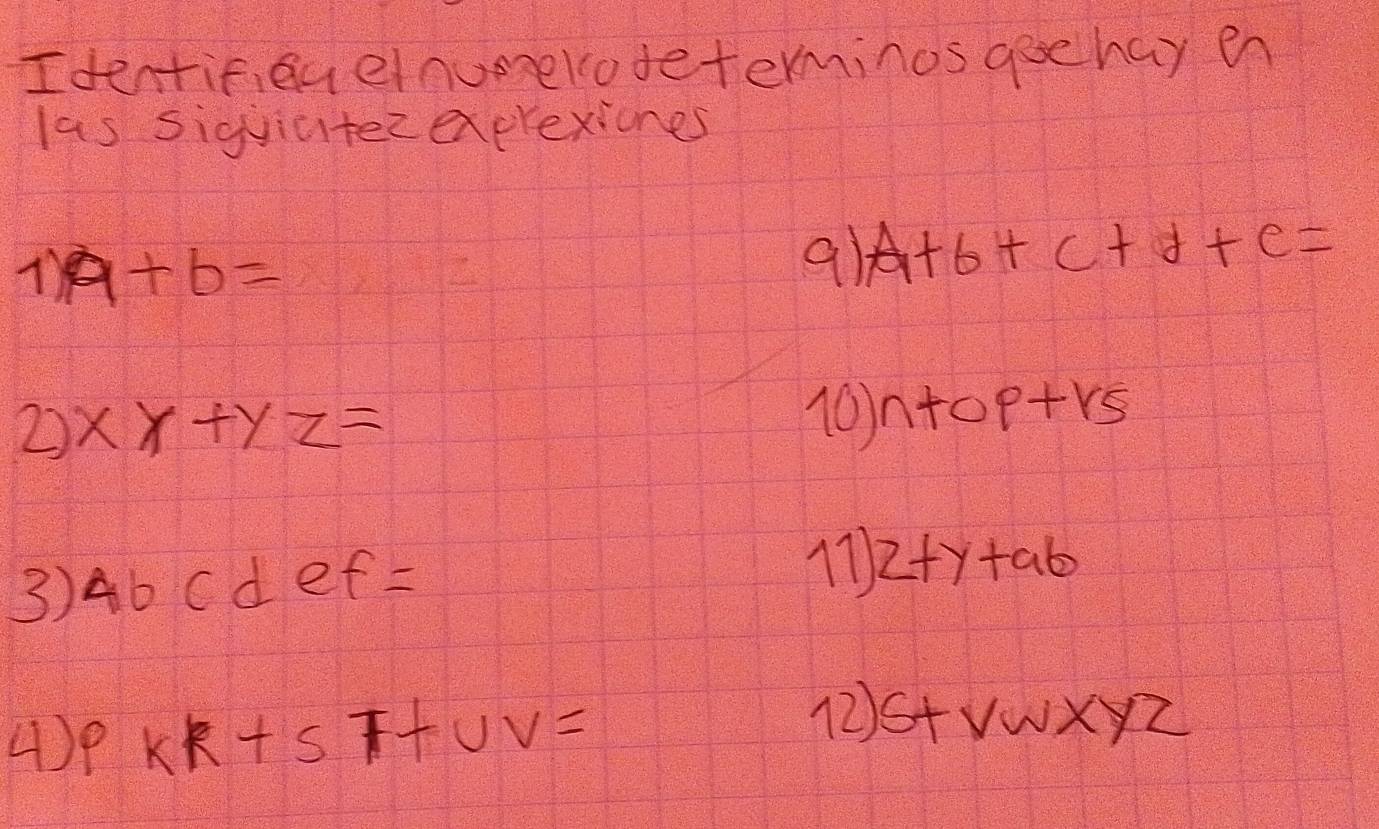 Identifica el numero de terminos que hay en
las siguientez exprexiones
1) a + b =
2) x y + y z =
3) A b c d e f =
4) P K R + S T + U V =
9) A + b + c + d + e =
10) n + o p + r s
11) z + y + a b
12) S + v w x y z